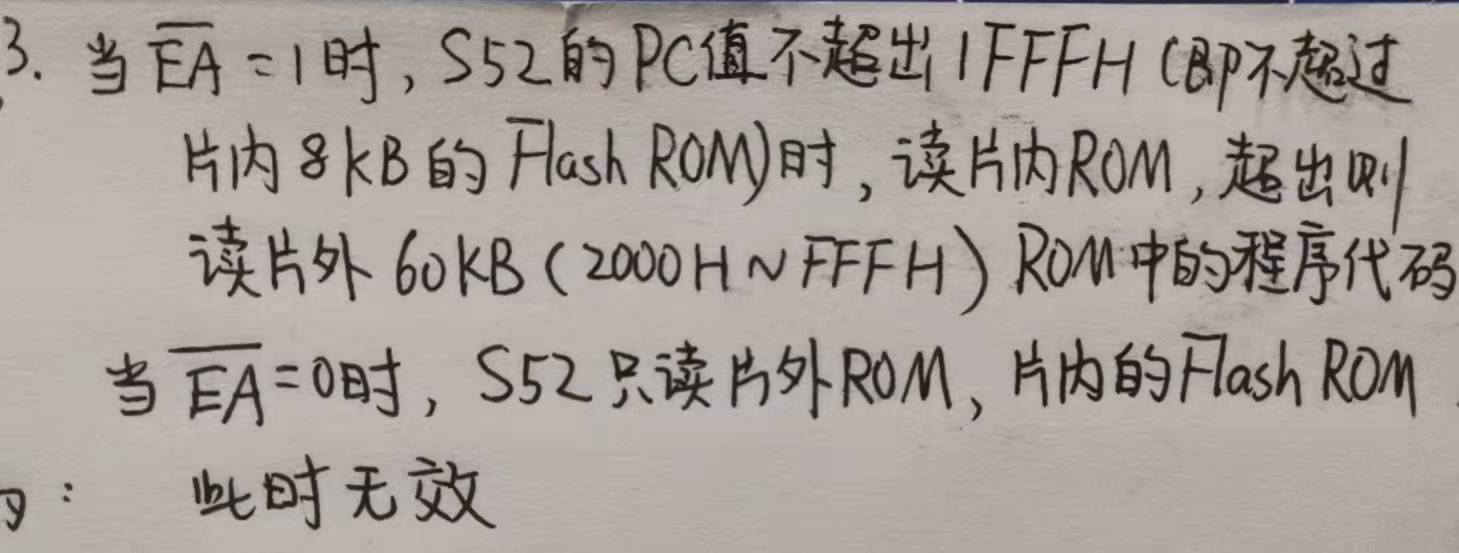 3. 当 E̅A̅ = 1时, S52的PC值不超出1FFFH (即不超过
片内8kB的Flash ROM)时, 读片内ROM, 超出则
读片外60KB (2000H~FFFH) ROM中的程序代码
当 E̅A̅=0时, S52只读片外ROM, 片内的Flash ROM
: 此时无效